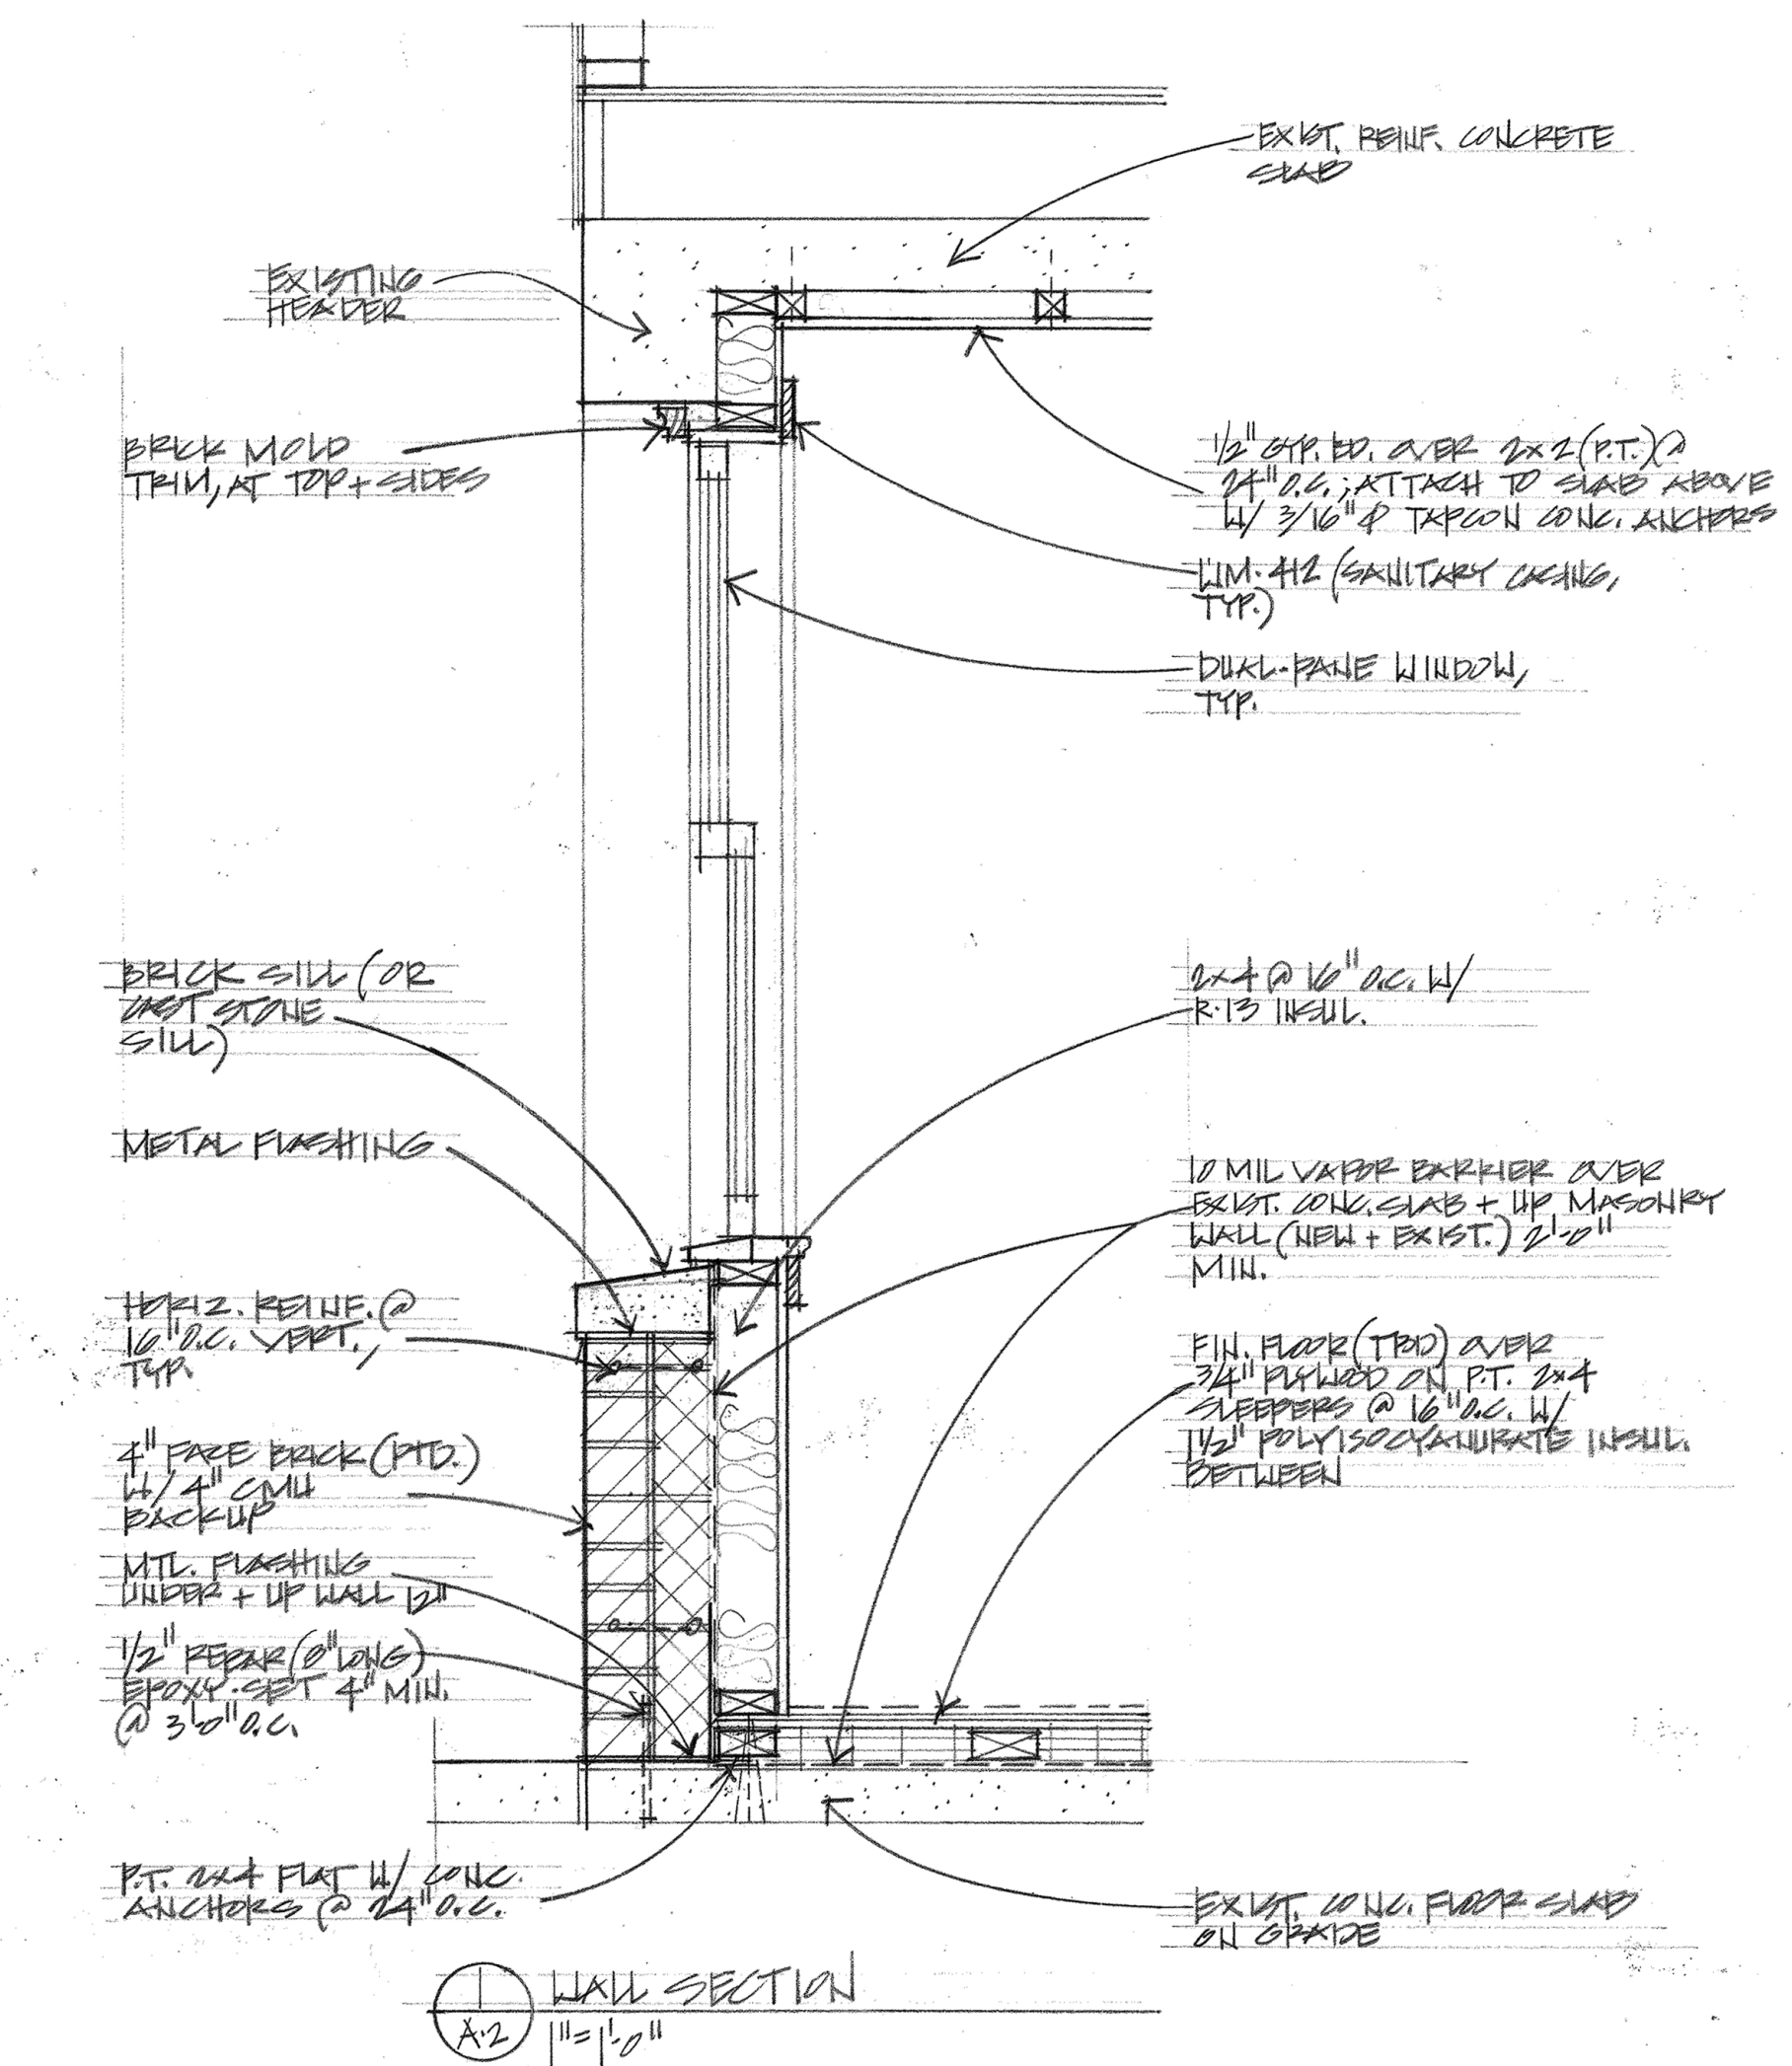 EXIST. REINF. CONCRETE
SLAB
EXISTING
HEADER
BRICK MOLD
TRIM, AT TOP + SIDES
1/2" GYP. BD. OVER 2x2 (P.T.) @
24" O.C.; ATTACH TO SLAB ABOVE
W/ 3/16" Φ TAPCON CONC. ANCHORS
WM·412 (SANITARY CASING,
TYP.)
DUAL-PANE WINDOW,
TYP.
BRICK SILL (OR
CAST STONE
SILL)
2x4 @ 16" O.C. W/
R·13 INSUL.
METAL FLASHING
10 MIL VAPOR BARRIER OVER
EXIST. CONC. SLAB + UP MASONRY
WALL (NEW + EXIST.) 2'-0"
MIN.
HORIZ. REINF. @
16" O.C. VERT.,
TYP.
FIN. FLOOR (TBD) OVER
3/4" PLYWOOD ON P.T. 2x4
SLEEPERS @ 16" O.C. W/
1 1/2" POLYISOCYANURATE INSUL.
BETWEEN
4" FACE BRICK (PTD.)
W/ 4" CMU
BACKUP
MTL. FLASHING
UNDER + UP WALL 12"
1/2" REBAR (8" LONG)
EPOXY-SET 4" MIN.
@ 3'-0" O.C.
P.T. 2x4 FLAT W/ CONC.
ANCHORS @ 24" O.C.
EXIST. CONC. FLOOR SLAB
ON GRADE
1 WALL SECTION
A·2 1"=1'-0"